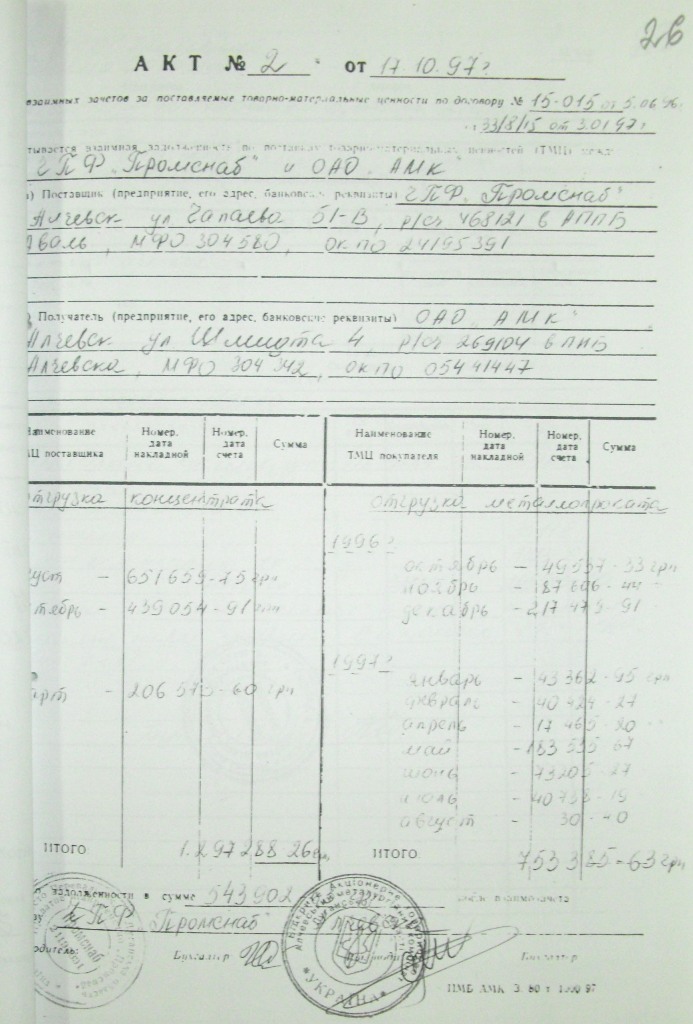 26
АКТ № 2 от 17.10.97г
взаимных зачетов за поставляемые товарно-материальные ценности по договору № 15-015 от 5.06.96
33/8/15 от 3.01.97г
взаимная задолженность по поставкам товарно-материальных ценностей (ТМЦ) между
ЧПФ „Промснаб" и ОАО „АМК"
) Поставщик (предприятие, его адрес, банковские реквизиты) ЧПФ „Промснаб"
Алчевск ул Чапаева 51-В, р/сч 468121 в АППБ
Аваль, МФО 304580, окпо 24195391
Получатель (предприятие, его адрес, банковские реквизиты) ОАО „АМК"
Алчевск ул Шмидта 4, р/сч 269104 в ПИБ
Алчевска, МФО 304342, окпо 05441447
Наименование ТМЦ поставщика Номер, дата накладной Номер, дата счета Сумма Наименование ТМЦ покупателя Номер, дата накладной Номер, дата счета Сумма
отгрузка концентрата отгрузка металлопроката
1996г
октябрь - 49557-33 грн
уст - 651659-75 грн ноябрь - 87606-44
тябрь - 439054-91 грн декабрь - 217479-91
1997г
январь - 43362-95 грн
арт - 206573-60 грн февраль - 40424-27
апрель - 17465-80
май - 183555-67
июнь - 73205-27
июль - 40738-19
август - 30-40
ИТОГО 1.297288.26 грн ИТОГО 753385-63 грн
задолженности в сумме 543902 после взаимозачета
ЧПФ „Промснаб"
водитель: Бухгалтер Бухгалтер
УКРАЇНА
ПМБ АМК З. 80 т. 1000 97